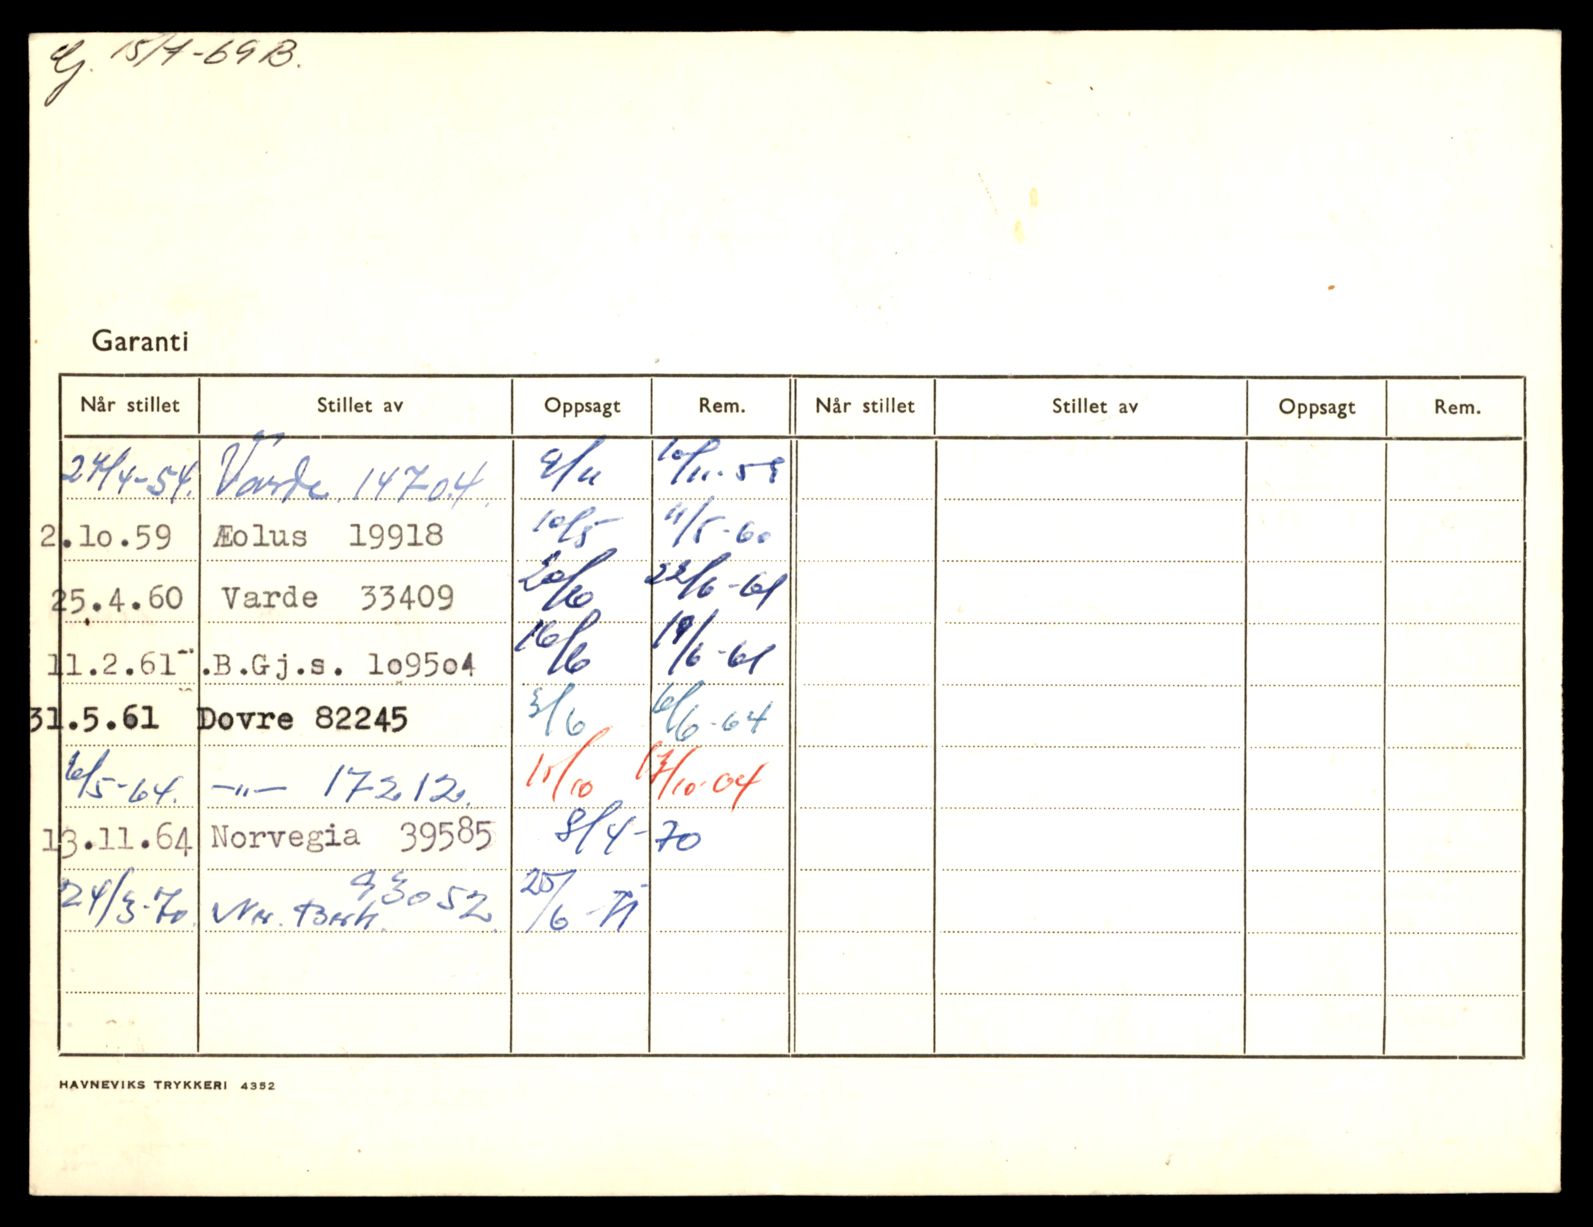 G. 15/7-69 B.
Garanti
Når stillet Stillet av Oppsagt Rem. Når stillet Stillet av Oppsagt Rem.
24/4-54. Varde 14704. 9/11 10/11-59
2.10.59 Æolus 19918 10/5 11/5-60
25.4.60 Varde 33409 20/6 22/6-61
11.2.61 .B.Gj.s. 109504 16/6 19/6-61
31.5.61 Dovre 82245 3/6 6/6-64
6/5-64. —"— 17212. 15/10 17/10-64
13.11.64 Norvegia 39585 8/4-70
24/3-70. 93052 25/6-71
HAVNEVIKS TRYKKERI 4352